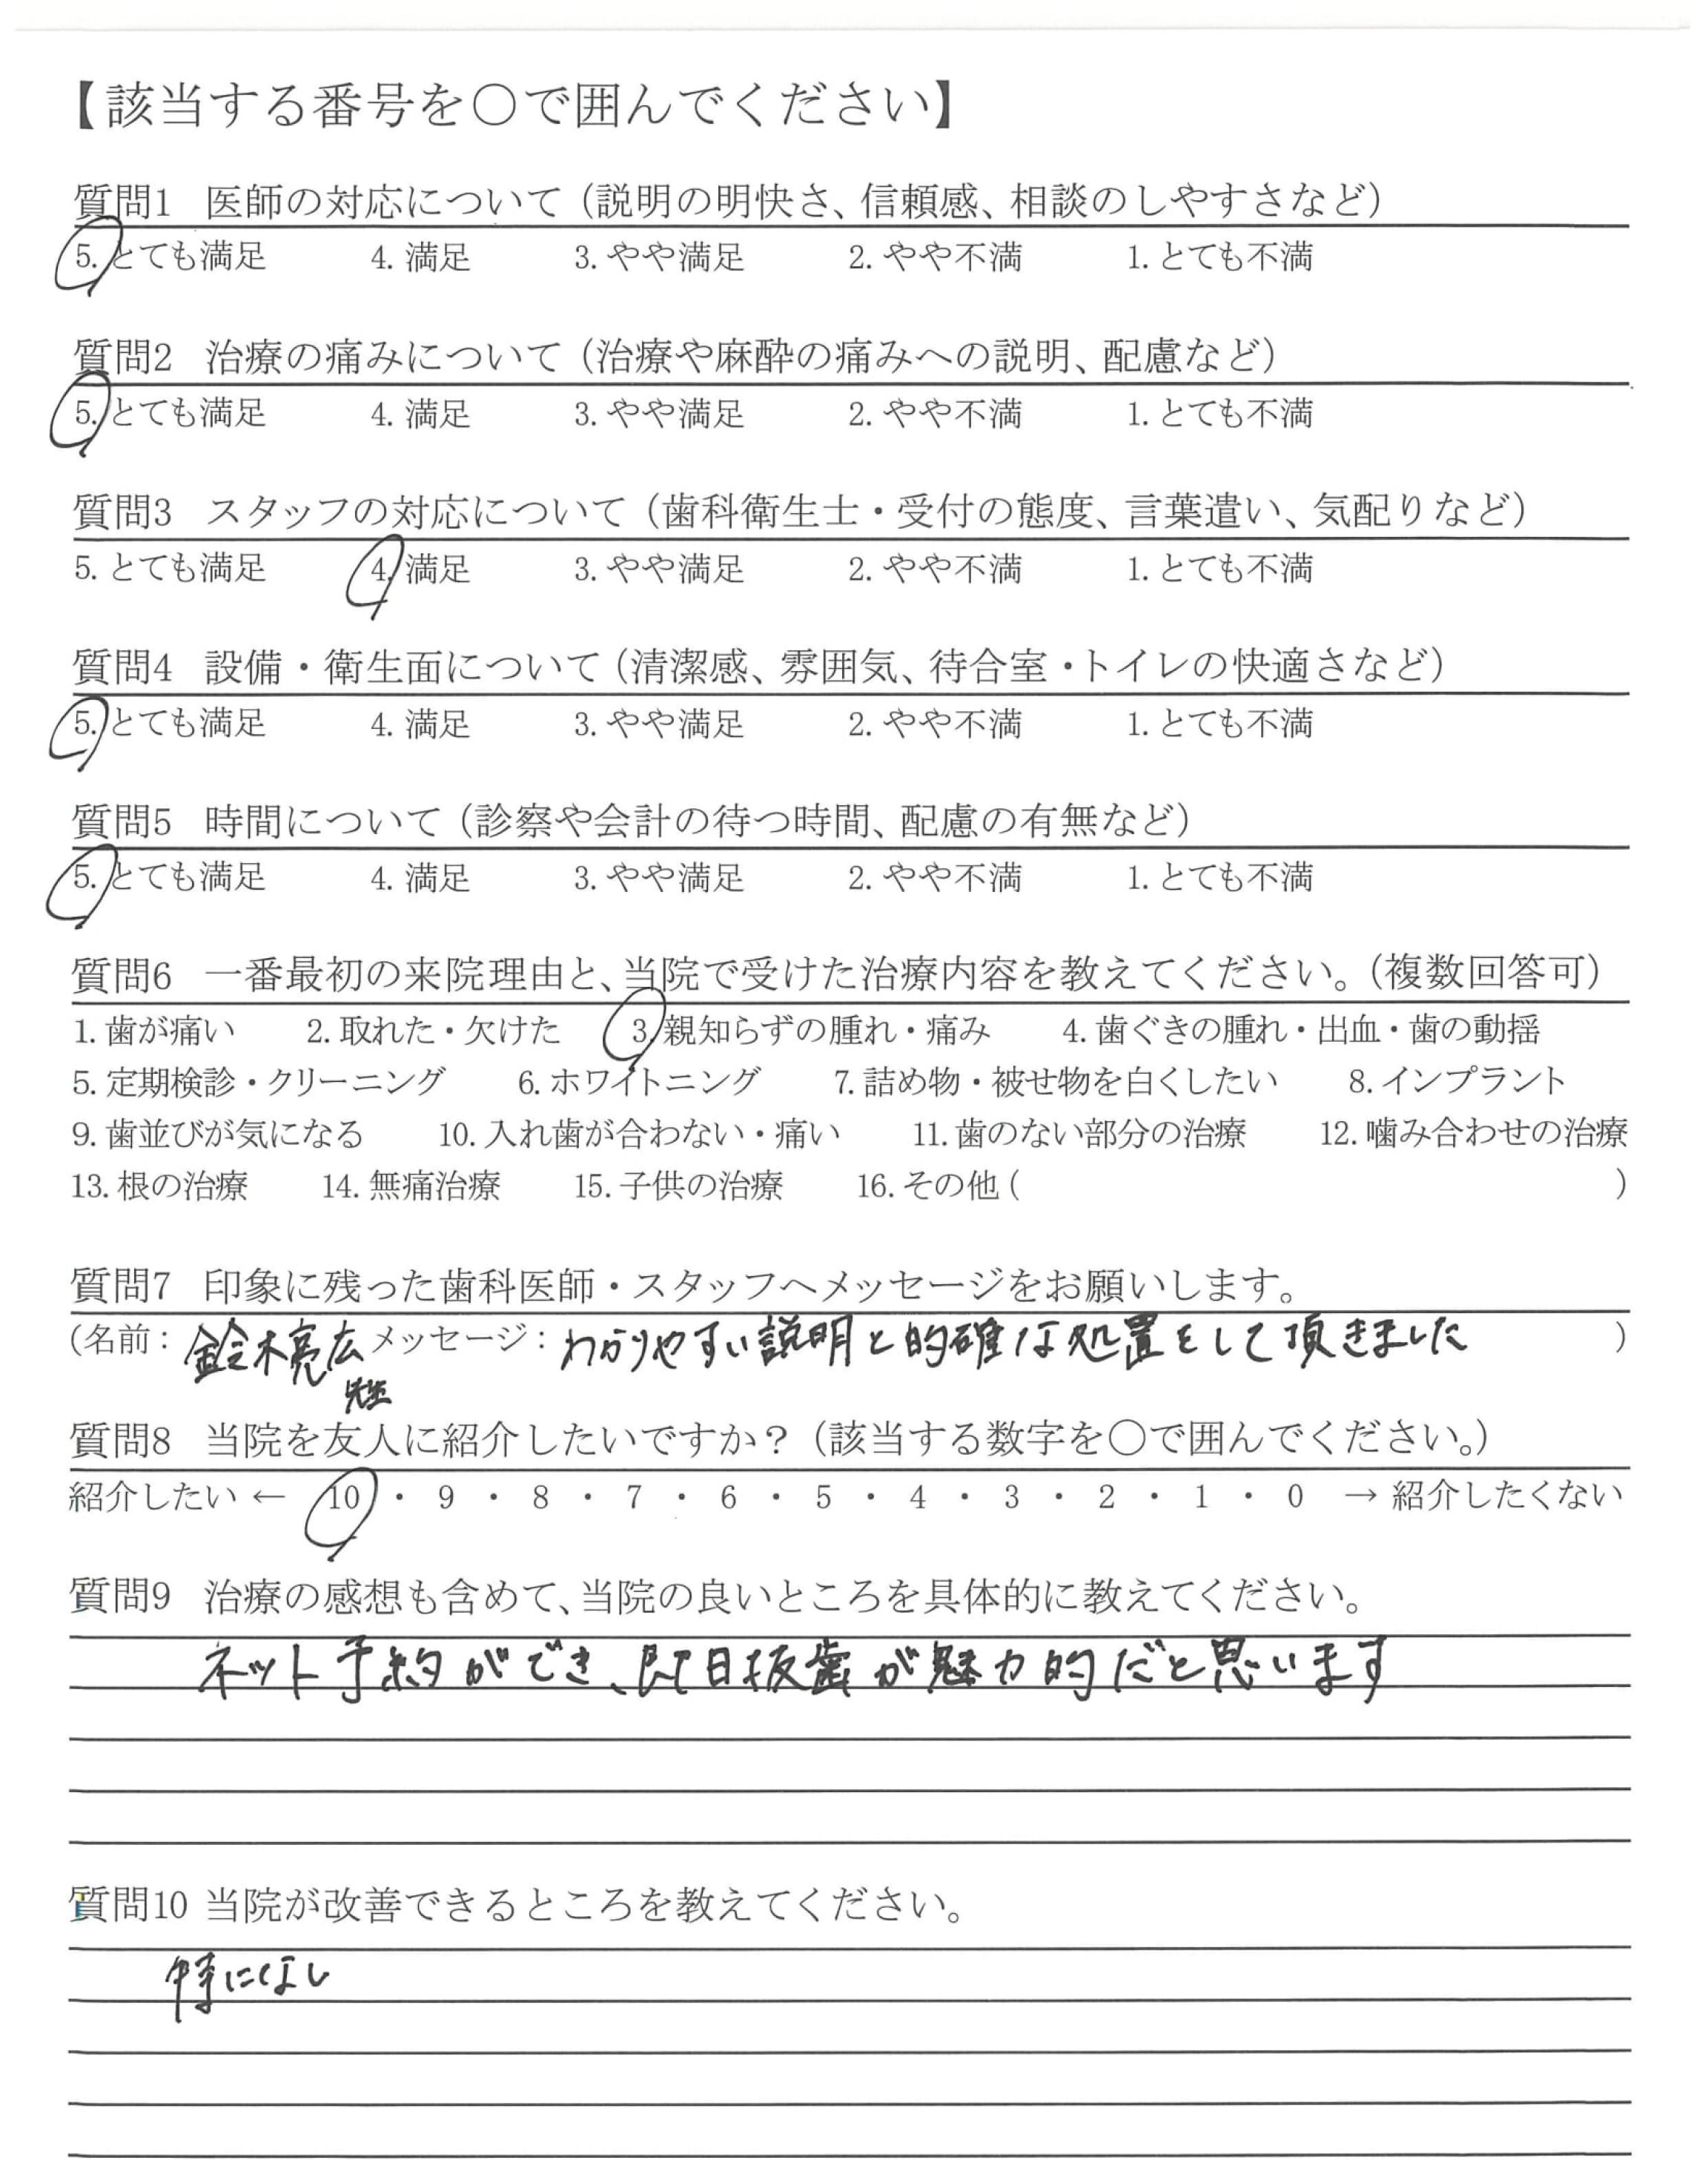 【該当する番号を〇で囲んでください】
質問1 医師の対応について（説明の明快さ、信頼感、相談のしやすさなど）
5. とても満足 4. 満足 3. やや満足 2. やや不満 1. とても不満
質問2 治療の痛みについて（治療や麻酔の痛みへの説明、配慮など）
5. とても満足 4. 満足 3. やや満足 2. やや不満 1. とても不満
質問3 スタッフの対応について（歯科衛生士・受付の態度、言葉遣い、気配りなど）
5. とても満足 4. 満足 3. やや満足 2. やや不満 1. とても不満
質問4 設備・衛生面について（清潔感、雰囲気、待合室・トイレの快適さなど）
5. とても満足 4. 満足 3. やや満足 2. やや不満 1. とても不満
質問5 時間について（診察や会計の待つ時間、配慮の有無など）
5. とても満足 4. 満足 3. やや満足 2. やや不満 1. とても不満
質問6 一番最初の来院理由と、当院で受けた治療内容を教えてください。（複数回答可）
1. 歯が痛い 2. 取れた・欠けた 3. 親知らずの腫れ・痛み 4. 歯ぐきの腫れ・出血・歯の動揺
5. 定期検診・クリーニング 6. ホワイトニング 7. 詰め物・被せ物を白くしたい 8. インプラント
9. 歯並びが気になる 10. 入れ歯が合わない・痛い 11. 歯のない部分の治療 12. 噛み合わせの治療
13. 根の治療 14. 無痛治療 15. 子供の治療 16. その他（ ）
質問7 印象に残った歯科医師・スタッフへメッセージをお願いします。
（名前：鈴木亮広 メッセージ：わかりやすい説明と的確な処置をして頂きました ）
先生
質問8 当院を友人に紹介したいですか？（該当する数字を〇で囲んでください。）
紹介したい ← 10 ・ 9 ・ 8 ・ 7 ・ 6 ・ 5 ・ 4 ・ 3 ・ 2 ・ 1 ・ 0 → 紹介したくない
質問9 治療の感想も含めて、当院の良いところを具体的に教えてください。
ネット予約ができ、即日抜歯が魅力的だと思います
質問10 当院が改善できるところを教えてください。
特になし